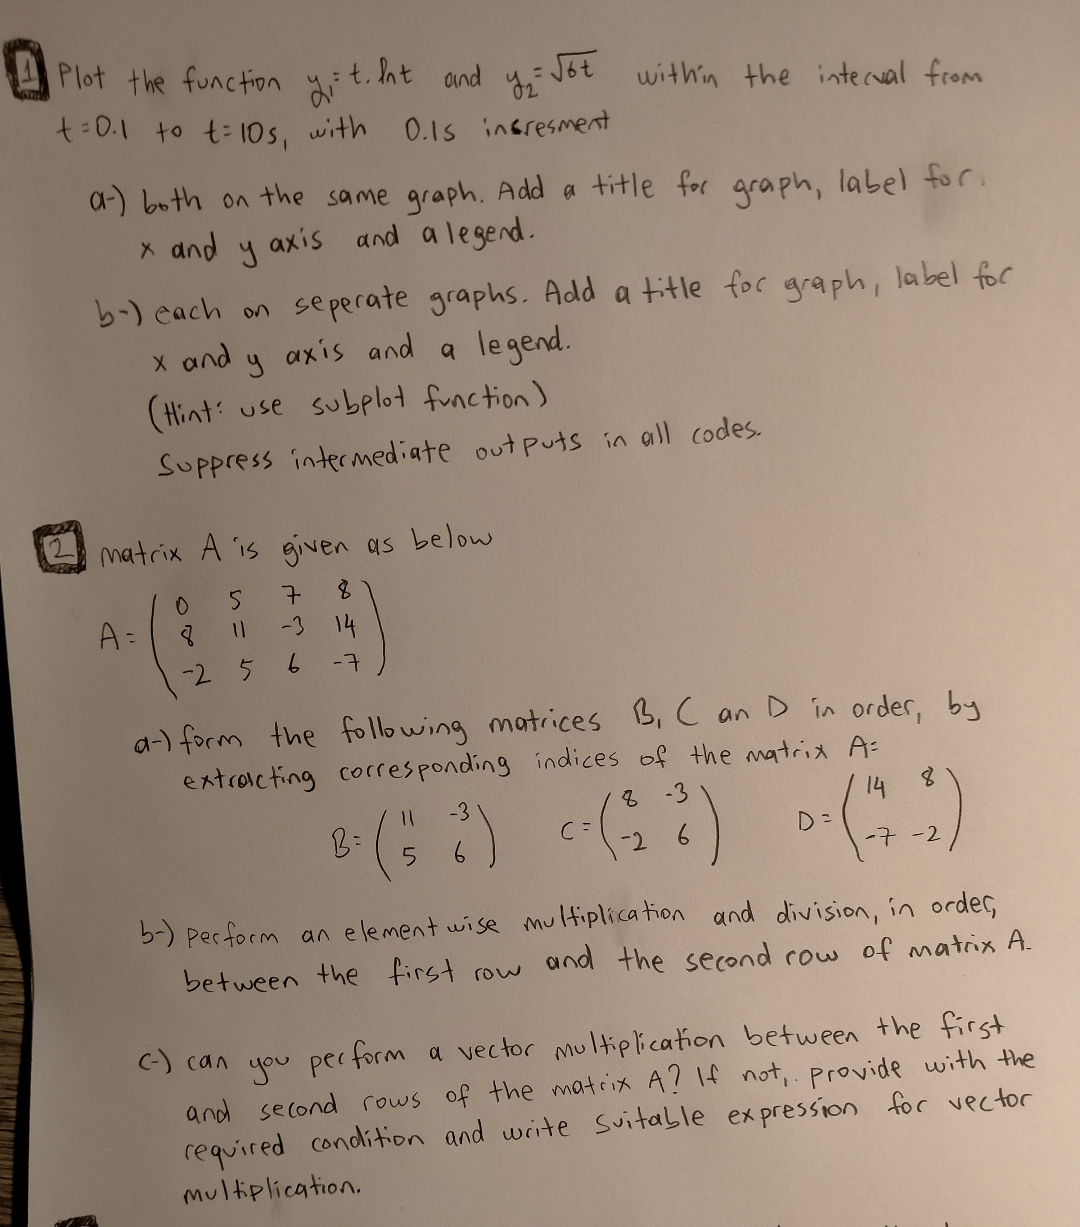 1 Plot the function y₁=t.lnt and y₂=√6t within the interval from
t=0.1 to t=10s, with 0.1s incresment
a-) both on the same graph. Add a title for graph, label for
x and y axis and a legend.
b-) each on seperate graphs. Add a title for graph, label for
x and y axis and a legend.
(Hint: use subplot function)
Suppress intermediate outputs in all codes.
2 matrix A is given as below
0 5 7 8
A= 8 11 -3 14
-2 5 6 -7
a-) form the following matrices B, C an D in order, by
extracting corresponding indices of the matrix A:
B= (11 -3 C= (8 -3 D= (14 8
5 6) -2 6) -7 -2)
b-) perform an element wise multiplication and division, in order,
between the first row and the second row of matrix A.
c-) can you perform a vector multiplication between the first
and second rows of the matrix A? If not, provide with the
required condition and write suitable expression for vector
multiplication.